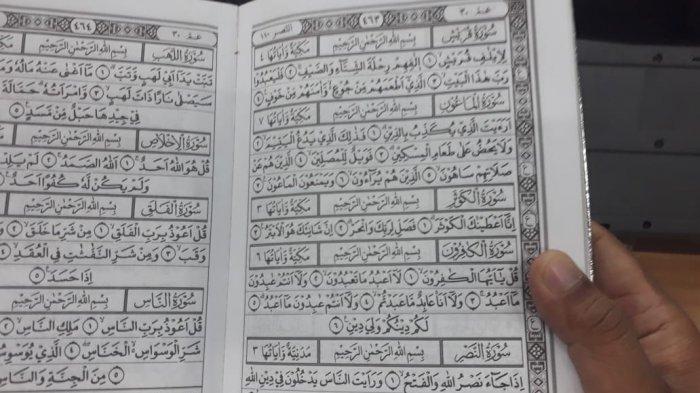 عمّ ٣٠ ٤٦٣ النصر ١١٠
سُورَةُ قُرَيْشٍ بِسْمِ اللهِ الرَّحْمٰنِ الرَّحِيْمِ مَكِّيَّةٌ وَاٰيَاتُهَا ٤
لِاِيْلٰفِ قُرَيْشٍ ١ اٖلٰفِهِمْ رِحْلَةَ الشِّتَآءِ وَالصَّيْفِ ٢ فَلْيَعْبُدُوْا
رَبَّ هٰذَا الْبَيْتِ ٣ الَّذِيْٓ اَطْعَمَهُمْ مِنْ جُوْعٍ وَاٰمَنَهُمْ مِنْ خَوْفٍ ٤
سُورَةُ الْمَاعُوْنِ بِسْمِ اللهِ الرَّحْمٰنِ الرَّحِيْمِ مَكِّيَّةٌ وَاٰيَاتُهَا ٧
اَرَءَيْتَ الَّذِيْ يُكَذِّبُ بِالدِّيْنِ ١ فَذٰلِكَ الَّذِيْ يَدُعُّ الْيَتِيْمَ ٢
وَلَا يَحُضُّ عَلٰى طَعَامِ الْمِسْكِيْنِ ٣ فَوَيْلٌ لِلْمُصَلِّيْنَ ٤ الَّذِيْنَ هُمْ عَنْ
صَلَاتِهِمْ سَاهُوْنَ ٥ الَّذِيْنَ هُمْ يُرَآءُوْنَ ٦ وَيَمْنَعُوْنَ الْمَاعُوْنَ ٧
سُورَةُ الْكَوْثَرِ بِسْمِ اللهِ الرَّحْمٰنِ الرَّحِيْمِ مَكِّيَّةٌ وَاٰيَاتُهَا ٣
اِنَّآ اَعْطَيْنٰكَ الْكَوْثَرَ ١ فَصَلِّ لِرَبِّكَ وَانْحَرْ ٢ اِنَّ شَانِئَكَ هُوَ الْاَبْتَرُ ٣
سُورَةُ الْكٰفِرُوْنَ بِسْمِ اللهِ الرَّحْمٰنِ الرَّحِيْمِ مَكِّيَّةٌ وَاٰيَاتُهَا ٦
قُلْ يٰٓاَيُّهَا الْكٰفِرُوْنَ ١ لَآ اَعْبُدُ مَا تَعْبُدُوْنَ ٢ وَلَآ اَنْتُمْ عٰبِدُوْنَ
مَآ اَعْبُدُ ٣ وَلَآ اَنَا عَابِدٌ مَا عَبَدْتُّمْ ٤ وَلَآ اَنْتُمْ عٰبِدُوْنَ مَآ اَعْبُدُ ٥
لَكُمْ دِيْنُكُمْ وَلِيَ دِيْنِ ٦
سُورَةُ النَّصْرِ بِسْمِ اللهِ الرَّحْمٰنِ الرَّحِيْمِ مَدَنِيَّةٌ وَاٰيَاتُهَا ٣
اِذَا جَآءَ نَصْرُ اللهِ وَالْفَتْحُ ١ وَرَاَيْتَ النَّاسَ يَدْخُلُوْنَ فِيْ دِيْنِ اللهِ
عمّ ٣٠ ٤٦٤
سُورَةُ اللَّهَبِ بِسْمِ اللهِ الرَّحْمٰنِ الرَّحِيْمِ
تَبَّتْ يَدَآ اَبِيْ لَهَبٍ وَتَبَّ ١ مَآ اَغْنٰى عَنْهُ مَالُهٗ
سَيَصْلٰى نَارًا ذَاتَ لَهَبٍ ٣ وَامْرَاَتُهٗ حَمَّالَةَ
فِيْ جِيْدِهَا حَبْلٌ مِنْ مَسَدٍ ٥
سُورَةُ الْاِخْلَاصِ بِسْمِ اللهِ الرَّحْمٰنِ الرَّحِيْمِ
قُلْ هُوَ اللهُ اَحَدٌ ١ اَللهُ الصَّمَدُ ٢ لَمْ يَلِدْ
وَلَمْ يَكُنْ لَهٗ كُفُوًا اَحَدٌ ٤
سُورَةُ الْفَلَقِ بِسْمِ اللهِ الرَّحْمٰنِ الرَّحِيْمِ
قُلْ اَعُوْذُ بِرَبِّ الْفَلَقِ ١ مِنْ شَرِّ مَا خَلَقَ ٢
وَقَبَ ٣ وَمِنْ شَرِّ النَّفّٰثٰتِ فِى الْعُقَدِ ٤
اِذَا حَسَدَ ٥
سُورَةُ النَّاسِ بِسْمِ اللهِ الرَّحْمٰنِ الرَّحِيْمِ
قُلْ اَعُوْذُ بِرَبِّ النَّاسِ ١ مَلِكِ النَّاسِ ٢
شَرِّ الْوَسْوَاسِ الْخَنَّاسِ ٤ الَّذِيْ يُوَسْوِسُ
مِنَ الْجِنَّةِ وَالنَّاسِ